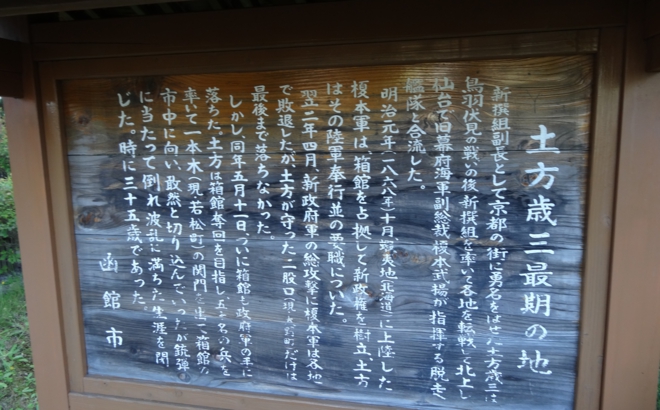 土方歳三最期の地
新撰組副長として京都の街に勇名をはせた土方歳三は
鳥羽伏見の戦いの後新撰組を率いて各地を転戦し北上し
仙台で旧幕府海軍副総裁榎本武揚が指揮する脱走
艦隊と合流した。
明治元年(一八六八年)十月蝦夷地(北海道)に上陸した
榎本軍は、箱館を占拠して新政権を樹立、土方
はその陸軍奉行並の要職についた。
翌二年四月、新政府軍の総攻撃に榎本軍は各地
で敗退したが土方が守った二股口(現・大野町)だけは
最後まで落ちなかった。
しかし、同年五月十一日、ついに箱館も政府軍の手に
落ちた。土方は箱館奪回を目指し、五十名の兵を
率いて一本木(現・若松町)の関門を出て箱館の
市中に向い、敢然と切り込んでいったが銃弾
に当たって倒れ波乱に満ちた生涯を閉
じた。時に三十五歳であった。
函館市